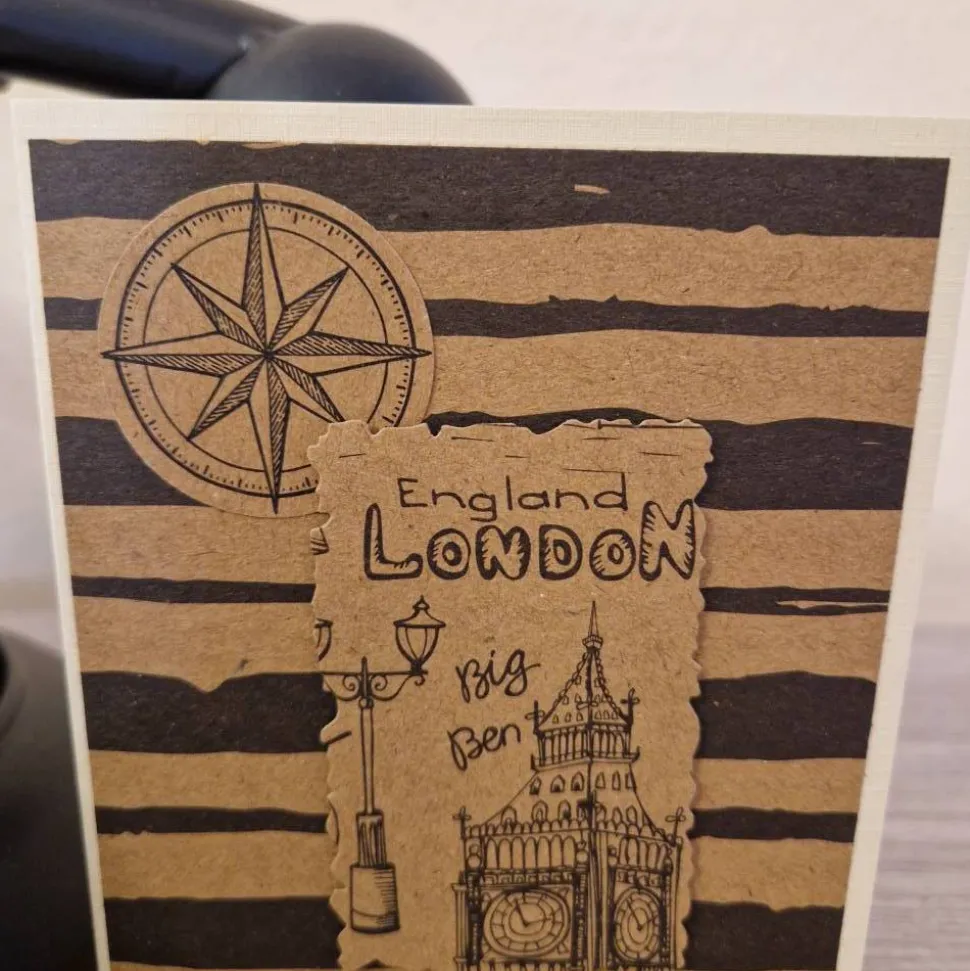 England
LONDON
Big
Ben